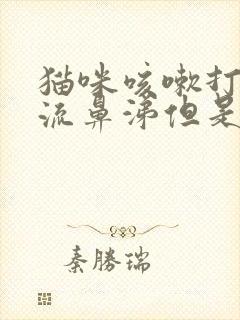 猫咪咳嗽打
流鼻涕但是
秦勝瑞